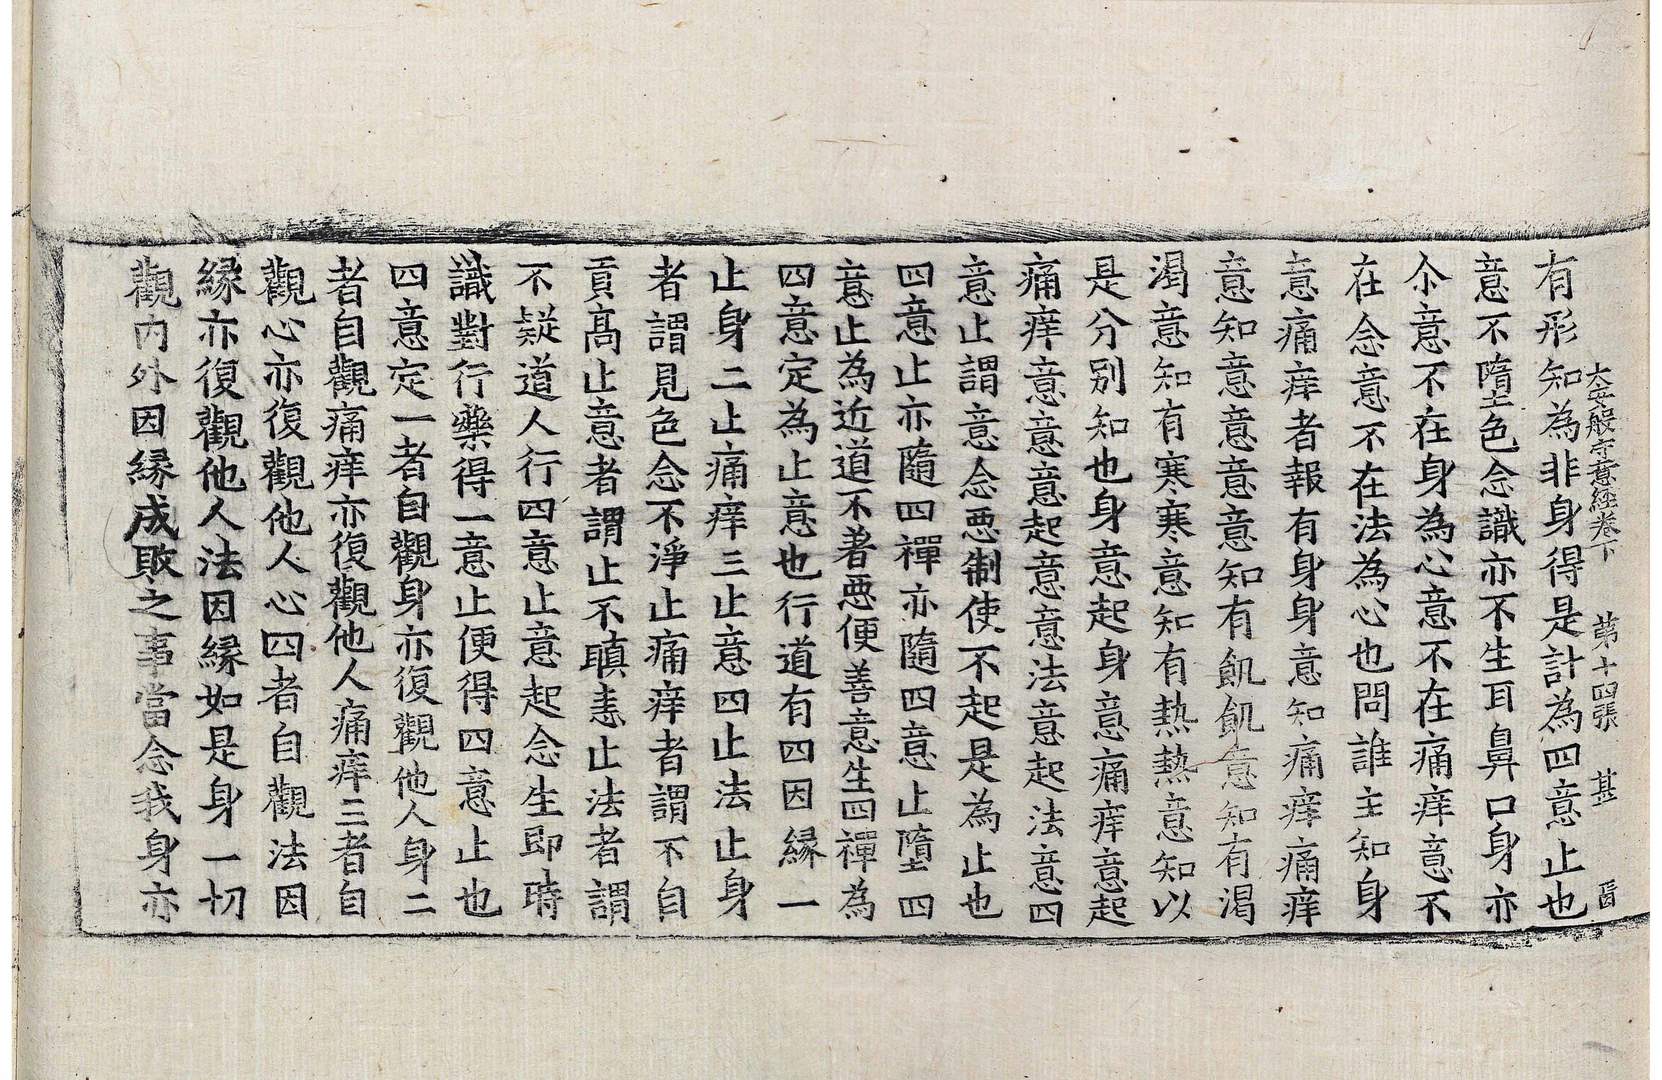 大安般守意經卷下 第十四張 甚
有形知為非身得是計為四意止也
意不墮色念識亦不生耳鼻口身亦
尒意不在身為心意不在痛痒意不
在念意不在法為心也問誰主知身
意痛痒者報有身身意知痛痒痛痒
意知意意意意知有飢飢意知有渴
渴意知有寒寒意知有熱熱意知以
是分別知也身意起身意痛痒意起
痛痒意意意起意意法意起法意四
意止謂意念惡制使不起是為止也
四意止亦隨四禪亦隨四意止墮四
意止為近道不著惡便善意生四禪為
四意定為止意也行道有四因緣一
止身二止痛痒三止意四止法止身
者謂見色念不淨止痛痒者謂不自
貢高止意者謂止不瞋恚止法者謂
不疑道人行四意止意起念生即時
識對行藥得一意止便得四意止也
四意定一者自觀身亦復觀他人身二
者自觀痛痒亦復觀他人痛痒三者自
觀心亦復觀他人心四者自觀法因
緣亦復觀他人法因緣如是身一切
觀內外因緣成敗之事當念我身亦